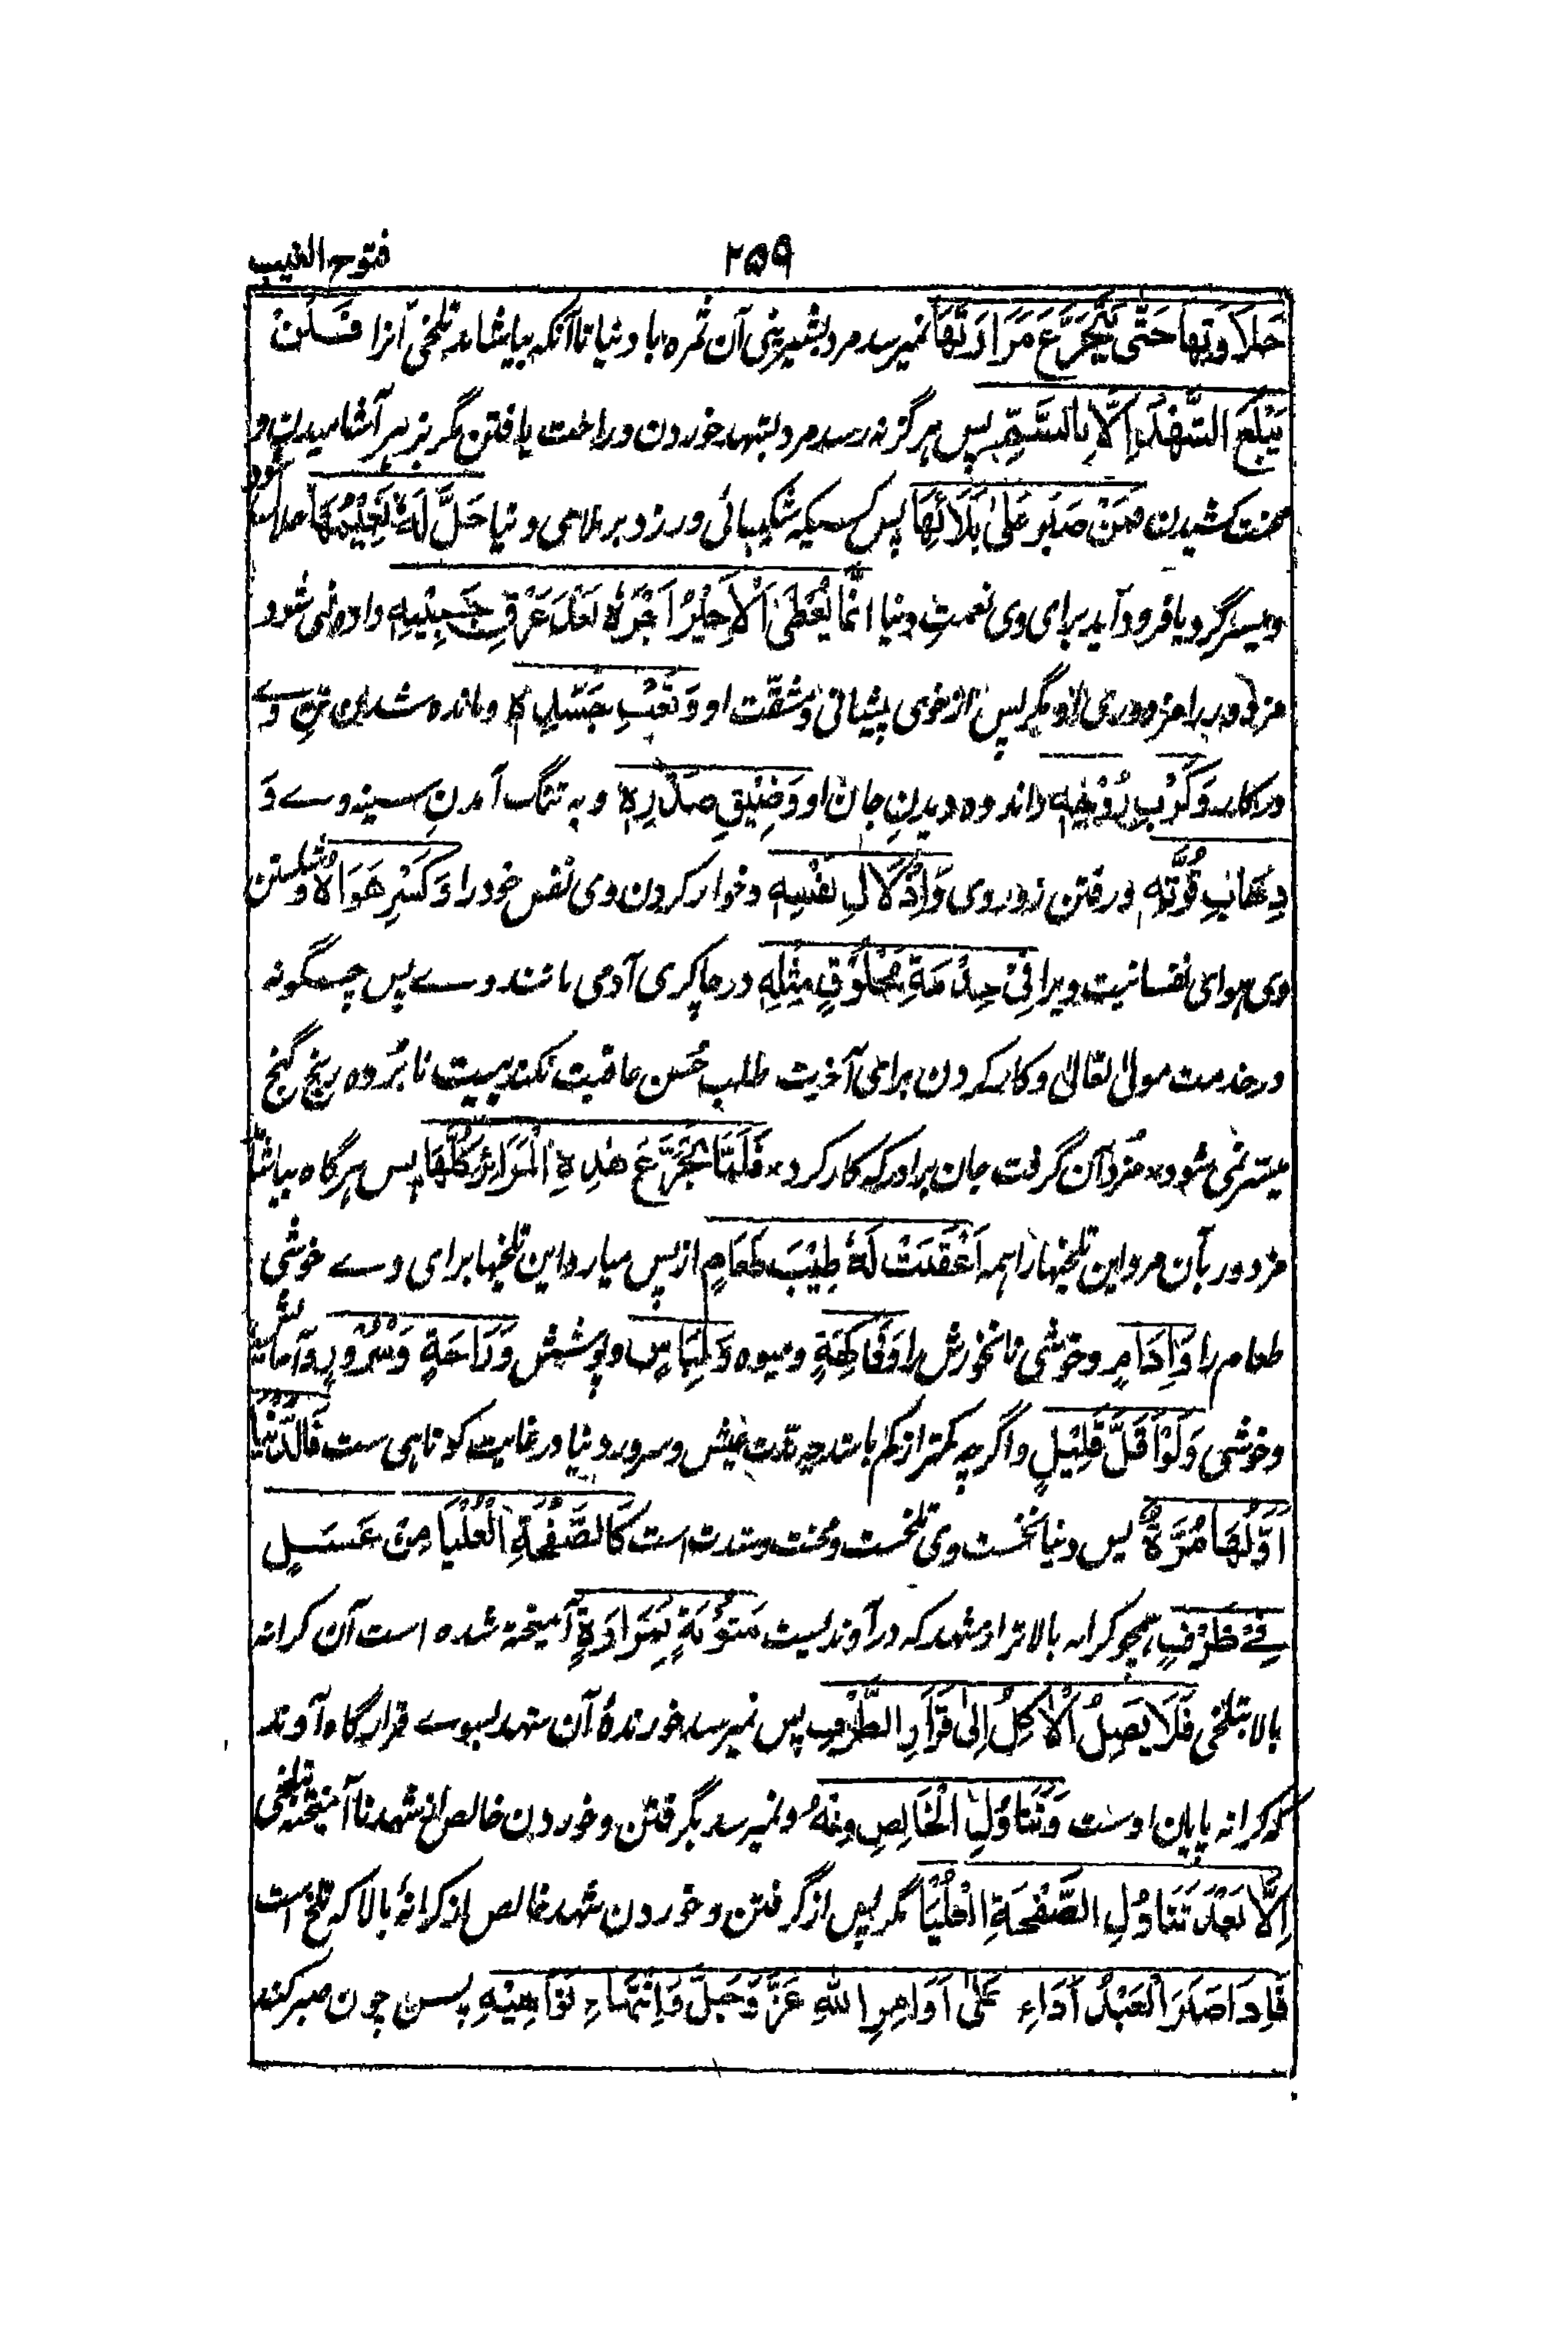 فتوح الغیب
۲۵۹
حَلَاوَتِهَا حَتّٰى يَتَجَرَّعَ مَرَارَتَهَا نمیرسد مرد بشیرینی آن ثمره یا دنیا تا آنکه بیاشامد تلخی آنرا فَلَنْ
يَبْلُغَ الشَّهْدَ اِلَّا بِالسَّمِّ پس هرگز نرسد مرد بشهد خوردن و راحت یافتن مگر بزهر آشامیدن و
محنت کشیدن فَمَنْ صَبَرَ عَلٰى بَلَائِهَا پس کسیکه شکیبائی ورزد بر بلاهای دنیا حَلَّ لَهٗ نَعِيْمُهَا حلال شود
و میسر گردد یا فرود آید برای وی نعمت دنیا اِنَّمَا يُعْطَى الْاَجِيْرُ اَجْرَهٗ بَعْدَ عَرَقِ جَبِيْنِهٖ داده نمی شود
مزدور را مزدوری او مگر پس از خوی پیشانی و مشقّت او وَتَعَبِ جَسَدِهٖ و مانده شدن تن وے
در کار وَكَرْبِ رُوْحِهٖ و اندوه دیدنِ جان او وَضِيْقِ صَدْرِهٖ و به تنگ آمدنِ سینه وے وَ
ذِهَابِ قُوَّتِهٖ و رفتن زور وی وَاِذْلَالِ نَفْسِهٖ و خوار کردن وی نفس خود را وَكَسْرِ هَوَاهُ و شکستن
وی هوای نفسانیت ویرا فِيْ خِدْمَةِ مَخْلُوْقٍ مِثْلِهٖ در چاکری آدمی مانند وے پس چگونه
در خدمت مولیٰ تعالیٰ و کار کردن برای آخرت طلب حُسن عاقبت نکند بیت نابُرده رنج گنج
میسّر نمی شود * مزد آن گرفت جان برادر که کار کرد * فَلَمَّا تَجَرَّعَ هٰذِهِ الْمَرَائِرَ كُلَّهَا پس هرگاه بیاشامد
مزدور بآن مرد این تلخیها را همه اَعْقَبَتْ لَهٗ طِيْبَ طَعَامٍ از پس میارد این تلخیها برای وے خوشی
طعام را وَاِدَامٍ و خوشی نانخورش را وَفَاكِهَةٍ و میوه وَلِبَاسٍ و پوشش وَرَاحَةٍ وَسُرُوْرٍ و آسایش
و خوشی وَلَوْ اَقَلَّ قَلِيْلٍ و اگرچه کمتر از کم باشد چه مدت عیش و سرور دنیا در غایت کوتاهی ست فَالدُّنْيَا
اَوَّلُهَا مُرَّةٌ پس دنیا نخست وی تلخست و محنت و شدت است كَالصَّفْحَةِ الْعُلْيَا مِنْ عَسَلٍ
فِيْ ظَرْفٍ همچو کرانه بالاتر از شهد که در آوندیست مَشُوْبَةٍ بِمَرَارَةٍ آمیخته شده است آن کرانه
بالا بتلخی فَلَا يَصِلُ الْاٰكِلُ اِلٰى قَرَارِ الظَّرْفِ پس نمیرسد خورندهٔ آن شهد بسوے قرارگاه آوند
که کرانه پایان اوست وَتَنَاوُلِ الْخَالِصِ مِنْهُ و نمیرسد بگرفتن و خوردن خالص از شهد ناآمیخته بتلخی
اِلَّا بَعْدَ تَنَاوُلِ الصَّفْحَةِ الْعُلْيَا مگر پس از گرفتن و خوردن شهد خالص از کرانهٔ بالا که تلخ است
فَاِذَا صَبَرَ الْعَبْدُ اَدَاءِ عَلٰى اَوَامِرِ اللّٰهِ عَزَّ وَجَلَّ وَانْتِهَاءِ نَوَاهِيْهِ پس چون صبر کند